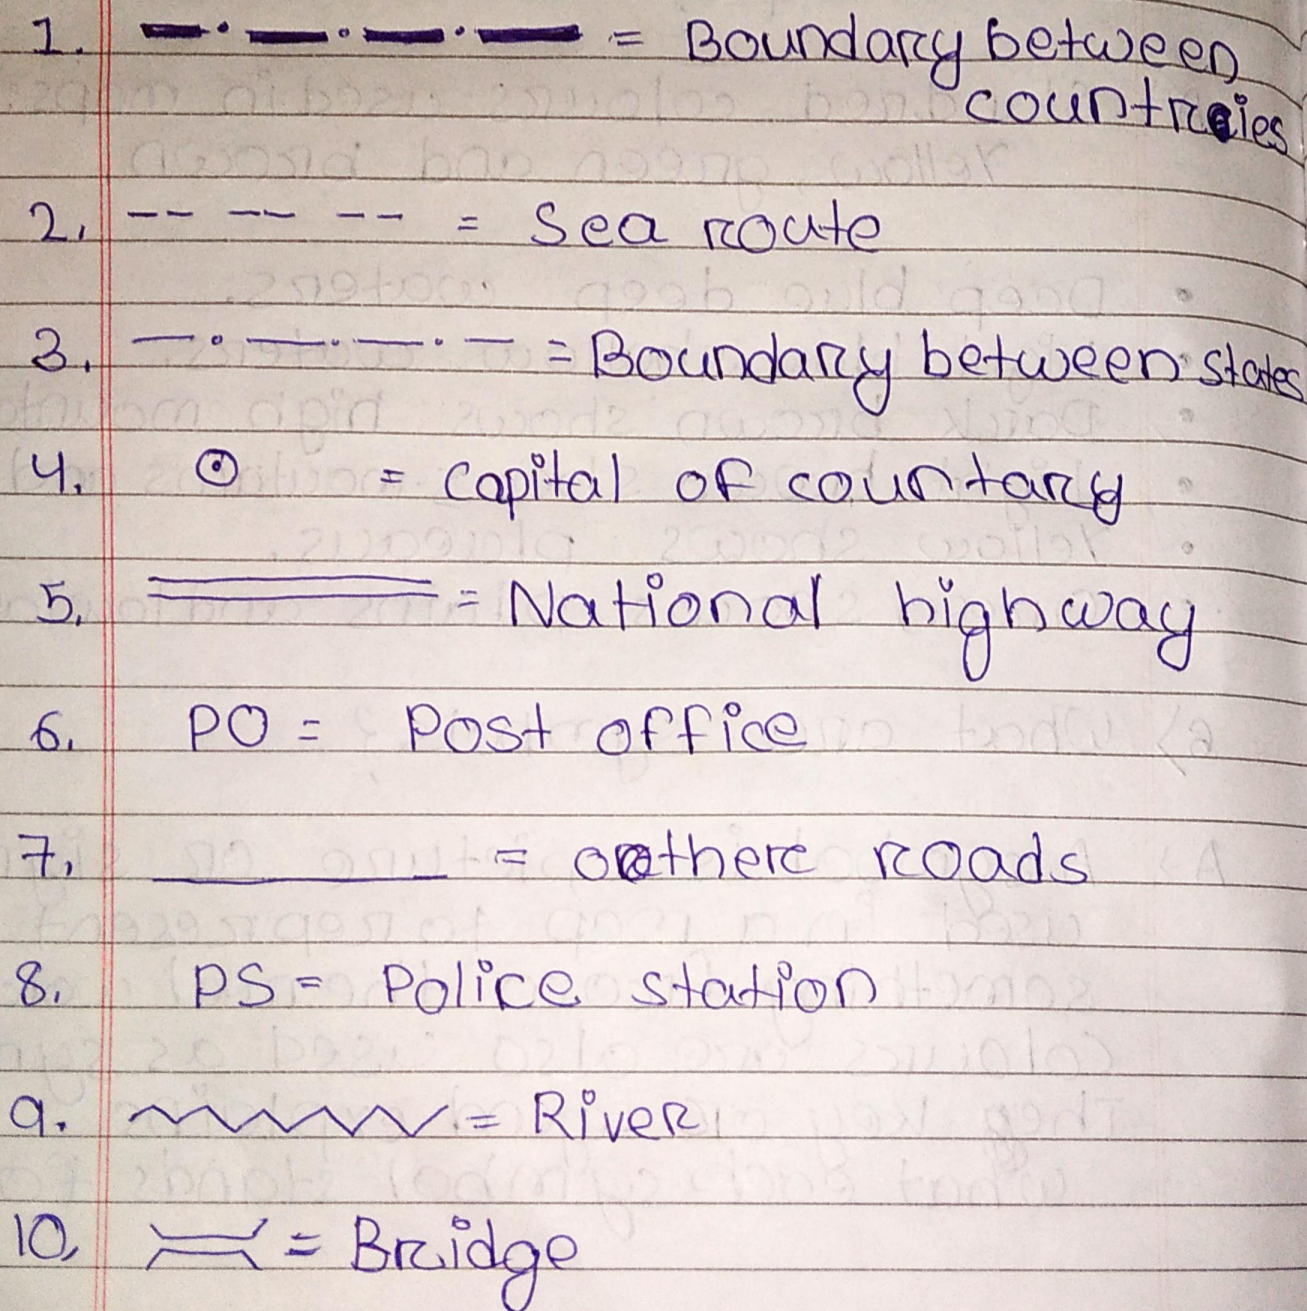 1. = Boundary between
countries
2. = Sea route
3. = Boundary between states
4. = capital of countary
5. = National highway
6. PO = Post office
7. = other roads
8. PS = Police station
9. = River
10. = Bridge